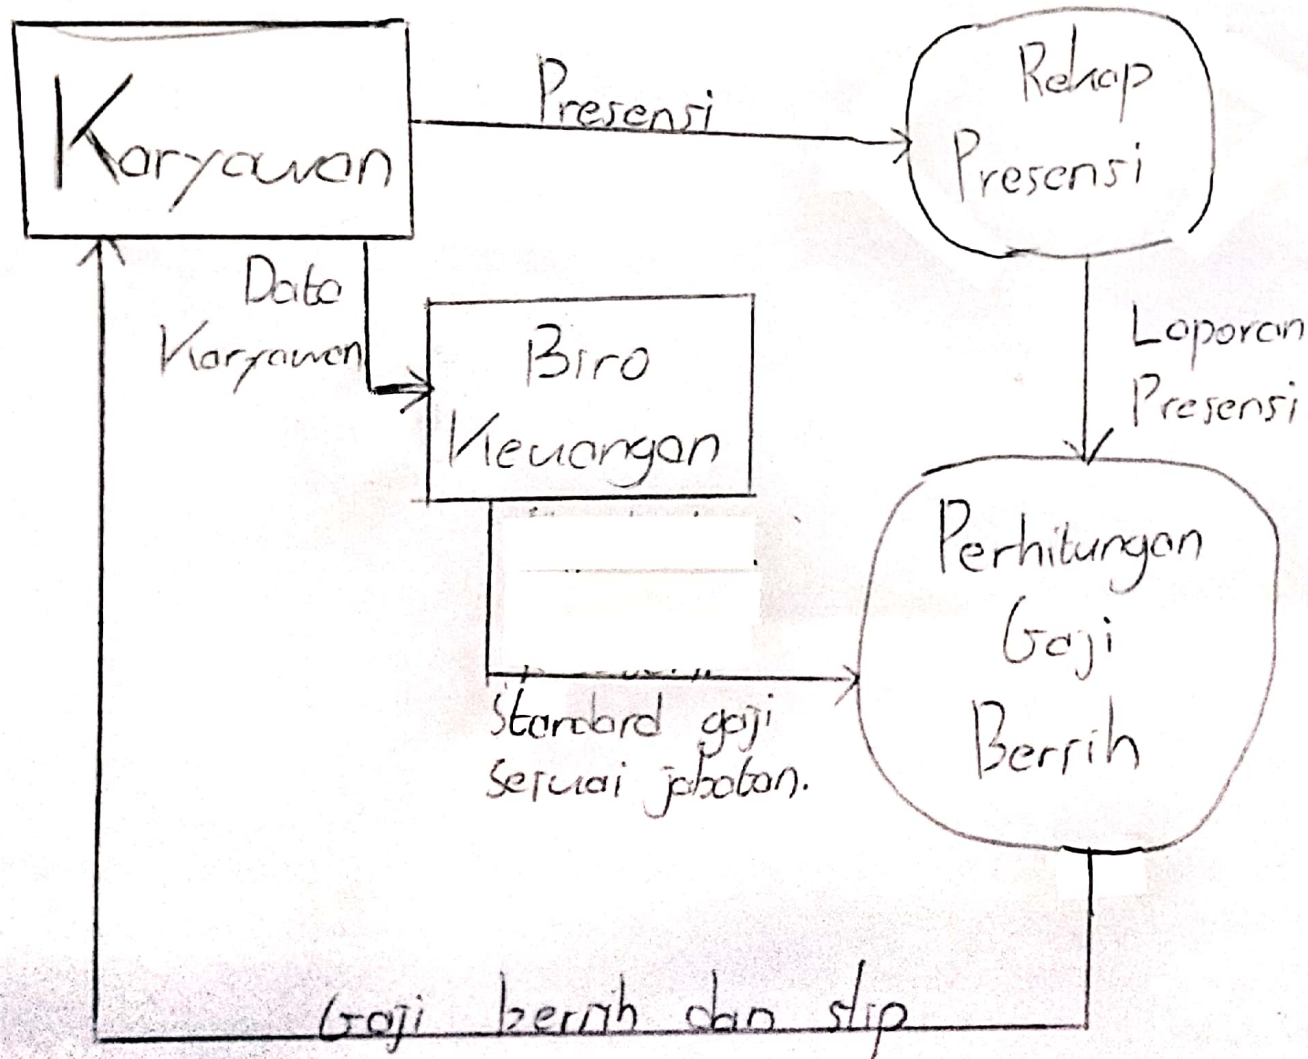 Karyawan
Presensi
Rekap
Presensi
Data
Karyawan
Biro
Keuangan
Laporan
Presensi
Perhitungan
Gaji
Bersih
Standard gaji
sesuai jabatan.
Gaji bersih dan slip